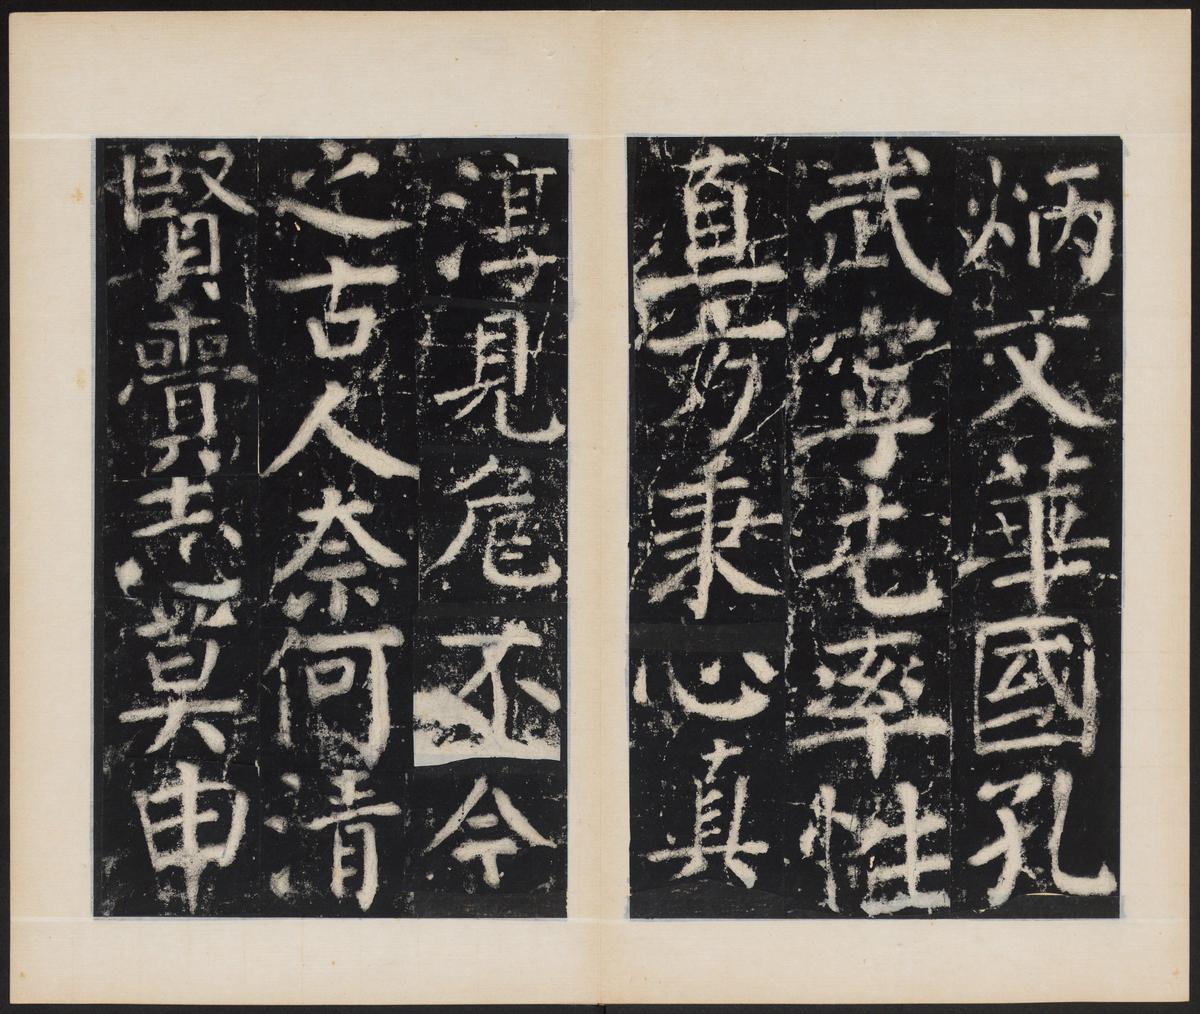 炳文華國孔
武寧屯率性
直方秉心真
淳見危不今
之古人奈何清
賢賷志莫申